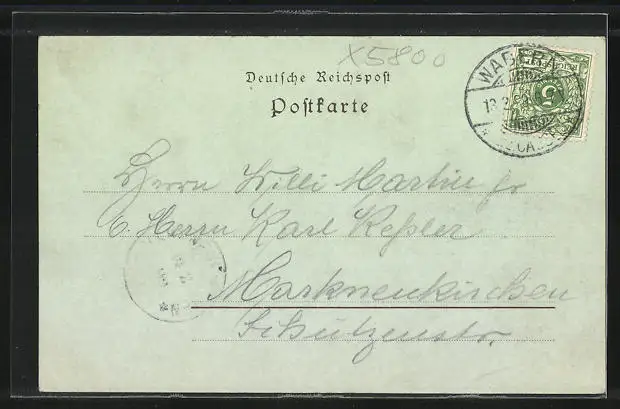 X5800
Deutsche Reichspost
Postkarte
WABERN
13.2.
(BZ. CASSEL)
5
Herrn Willi Martin jr
b. Herrn Karl Keßler
Markneukirchen
Schützenstr.